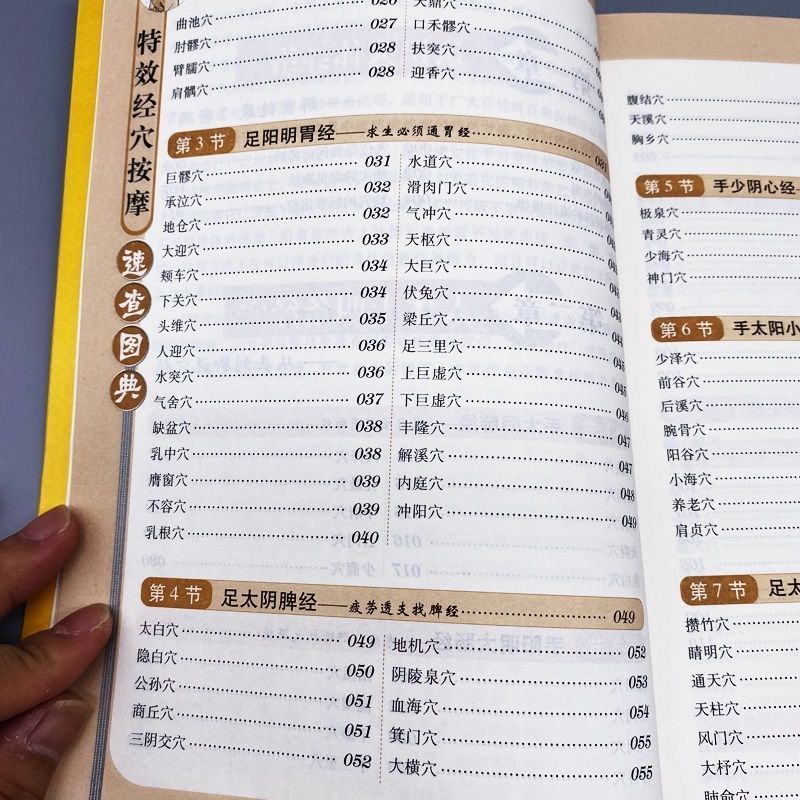 特效经穴按摩
速查图典
曲池穴 027
肘髎穴 027
臂臑穴 028
肩髃穴 028
口禾髎穴
扶突穴
迎香穴
第3节 足阳明胃经——求生必须通胃经 031
巨髎穴 031
承泣穴 032
地仓穴 032
大迎穴 033
颊车穴 034
下关穴 034
头维穴 035
人迎穴 036
水突穴 036
气舍穴 037
缺盆穴 038
乳中穴 038
膺窗穴 039
不容穴 039
乳根穴 040
水道穴
滑肉门穴
气冲穴
天枢穴
大巨穴
伏兔穴
梁丘穴
足三里穴
上巨虚穴
下巨虚穴 046
丰隆穴 047
解溪穴 047
内庭穴 048
冲阳穴 049
第4节 足太阴脾经——疲劳透支找脾经 049
太白穴 049
隐白穴 050
公孙穴 051
商丘穴 051
三阴交穴 052
地机穴 052
阴陵泉穴 053
血海穴 054
箕门穴 055
大横穴 055
腹结穴
天溪穴
胸乡穴
第5节 手少阴心经
极泉穴
青灵穴
少海穴
神门穴
第6节 手太阳小
少泽穴
前谷穴
后溪穴
腕骨穴
阳谷穴
小海穴
养老穴
肩贞穴
第7节 足太
攒竹穴
睛明穴
通天穴
天柱穴
风门穴
大杼穴
肺俞穴